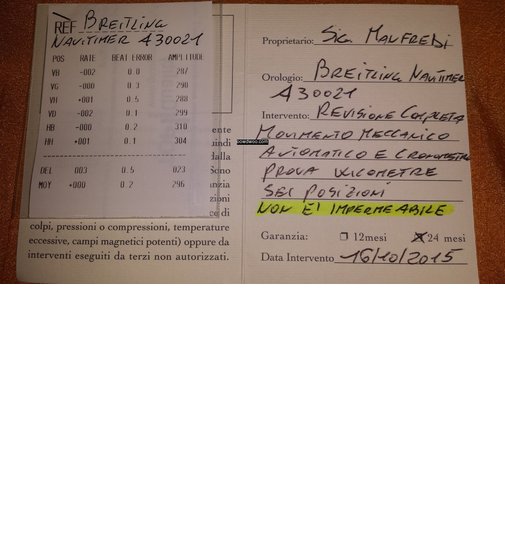 REF BREITLING
NAVITIMER A30021
POS RATE BEAT ERROR AMPLITUDE
VB -002 0.0 287
VG -000 0.3 290
VH +001 0.5 288
VD -002 0.1 299
HB -000 0.2 310
HH +001 0.1 304
DEL 003 0.5 023
MOY +000 0.2 296
ente
indi
dalla
Sono
anzia
zioni
ce di
colpi, pressioni o compressioni, temperature
eccessive, campi magnetici potenti) oppure da
interventi eseguiti da terzi non autorizzati.
Proprietario: SIG. MANFREDI
Orologio: BREITLING NAVITIMER
A30021
Intervento: REVISIONE COMPLETA
MOVIMENTO MECCANICO
AUTOMATICO E CRONOMETRO
PROVA VICOMETRE
SEI POSIZIONI
NON E' IMPERMEABILE
Garanzia: 12mesi 24 mesi
Data Intervento 16/10/2015